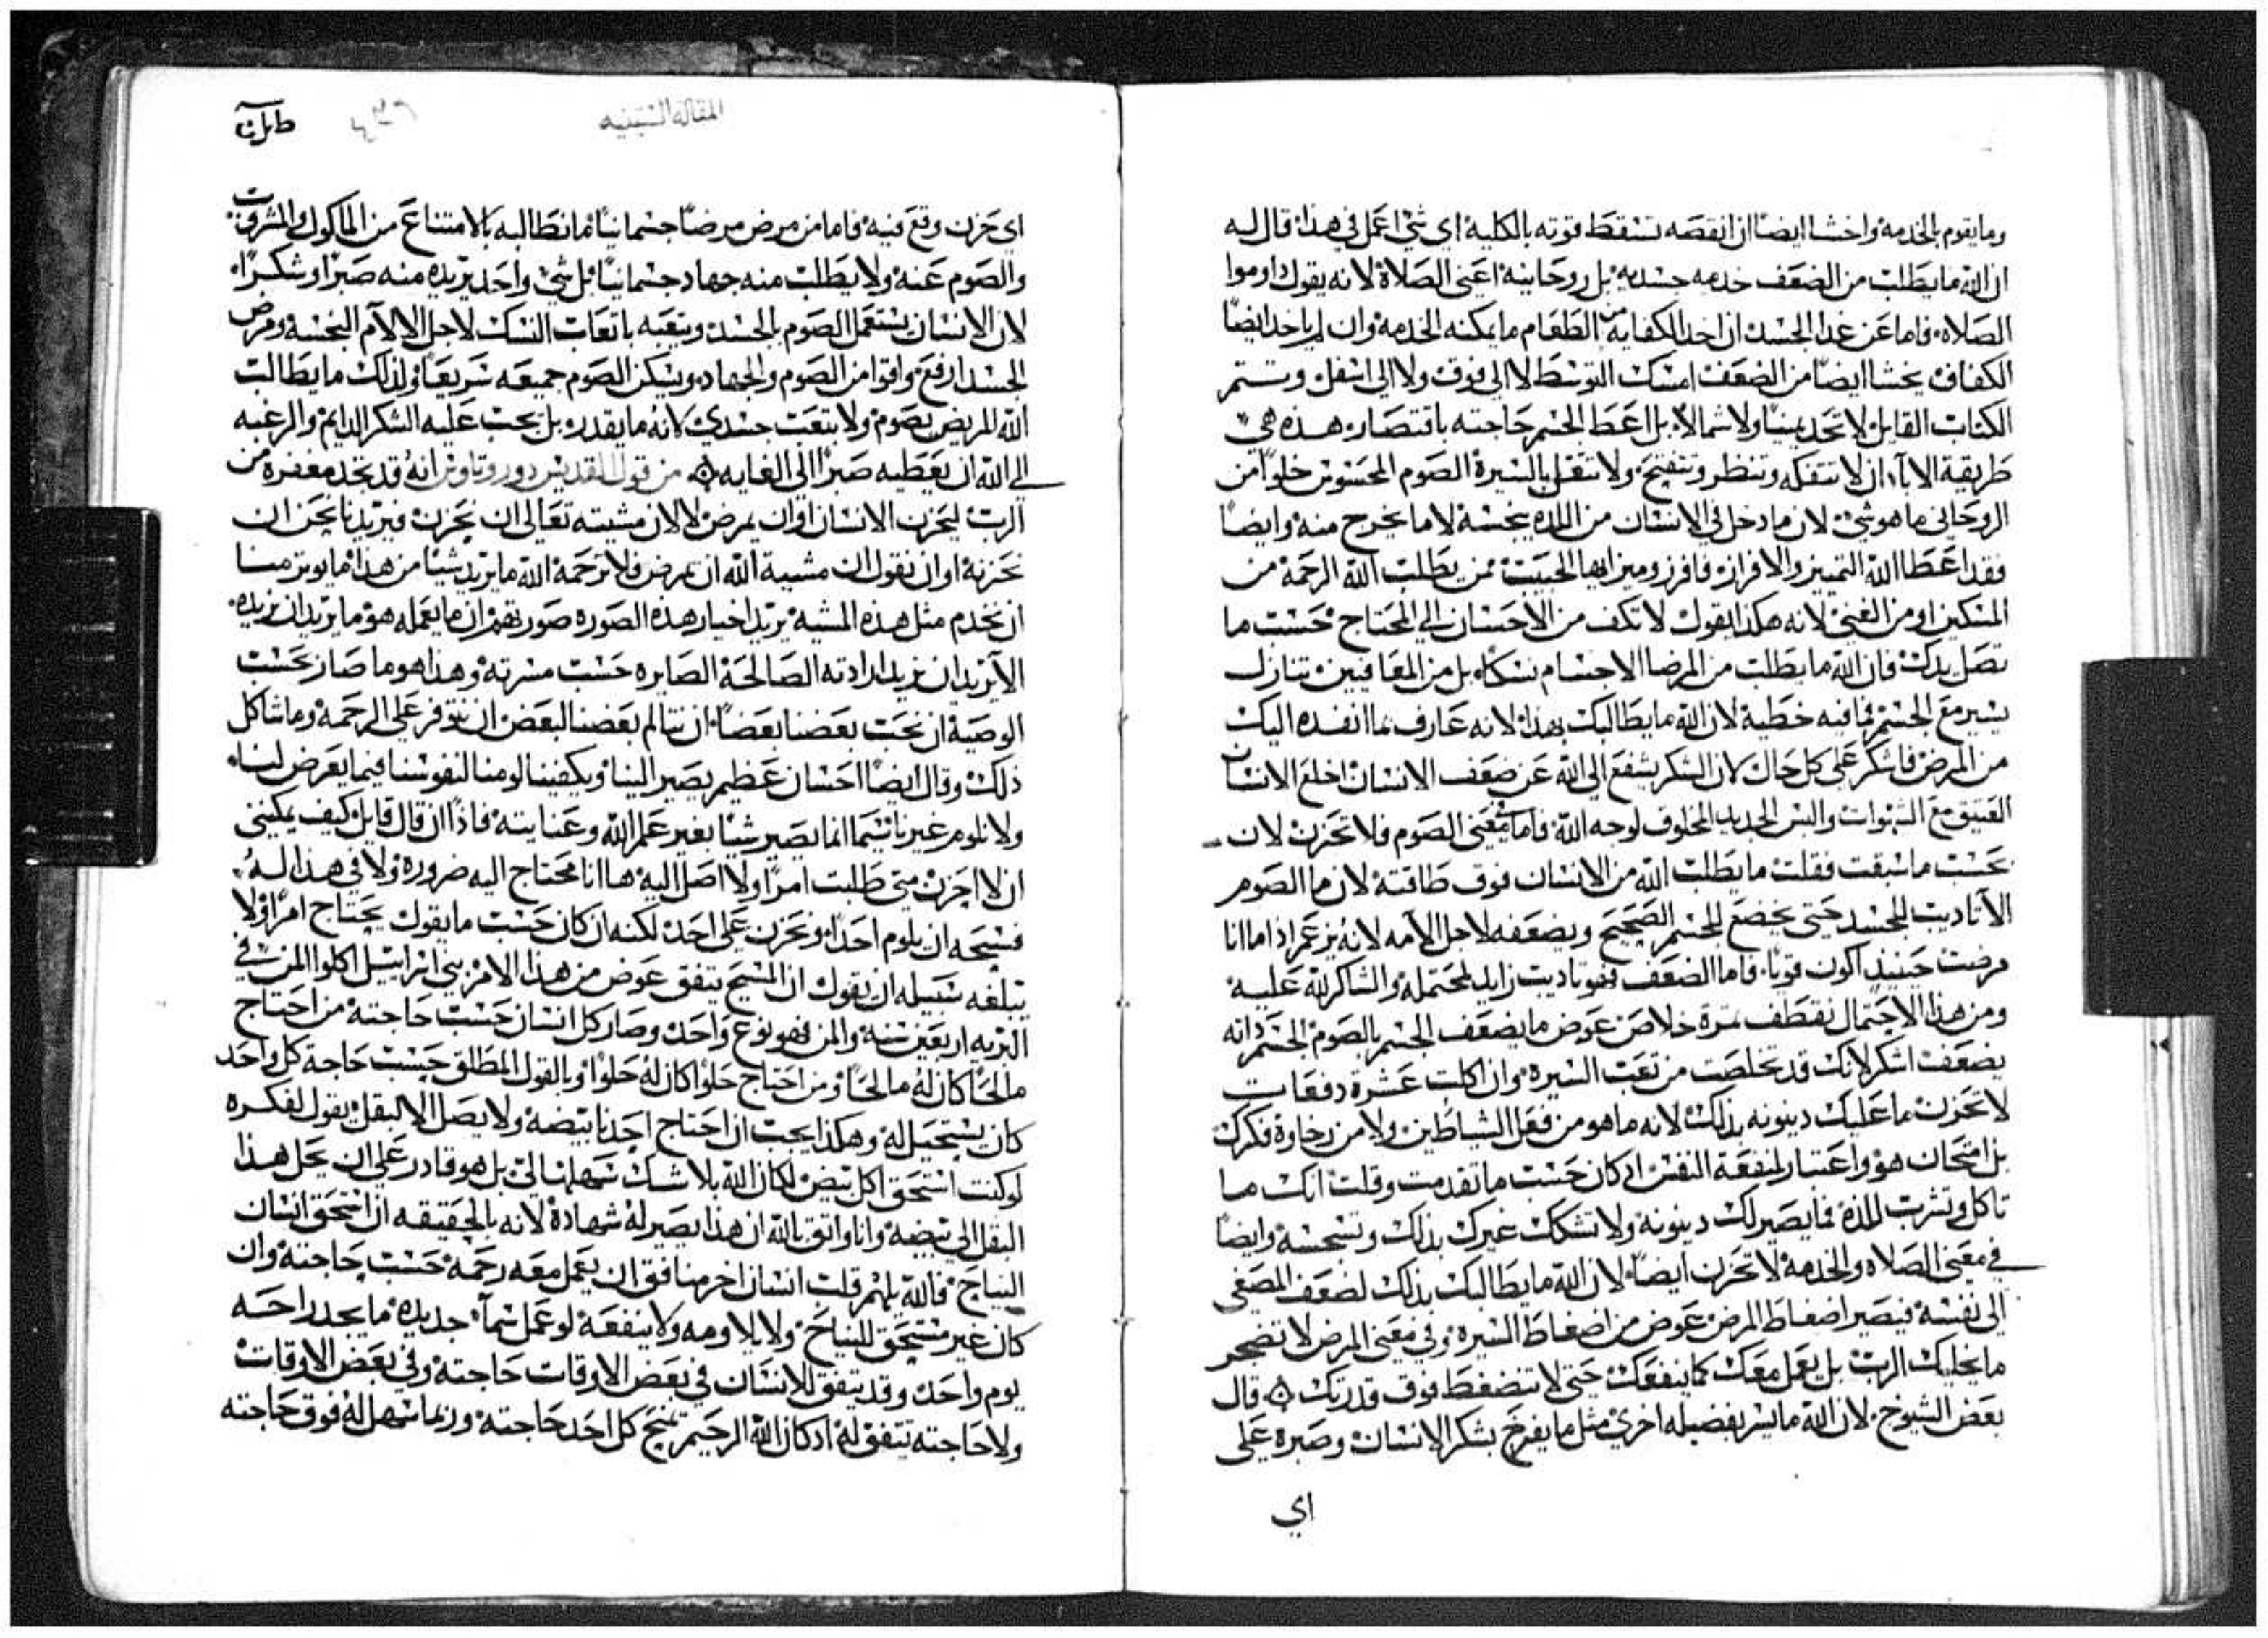 وما يقوم بالخدمه واخشا ايضا ان انقصه تسقط قوته بالكليه اي شي اعمل في هذا قال له
ان الله ما يطلب من الضعف خدمه جسديه بل روحانيه اعني الصلاة لانه يقول داوموا
الصلاه فاما عن غدا الجسد ان اخد الكفايه من الطعام ما يمكنه الخدمه وان لم ياخد ايضا
الكفاف يخشا ايضا من الضعف امسك التوسط لا الى فوق ولا الى اسفل وتستتم
الكتاب القايل لا تحد يمينا ولا شمالا بل اعط الجسم حاجته باقتصار هذه هي
طريقة الابا ان لا تتفكه وتنظر وتتقيح ولا تتقل بالسيرة الصوم المحسوس خلوا من
الروحاني ما هو شي لان ما دخل في الانسان من المده ينجسه لا ما يخرج منه وايضا
فقد اعطا الله التمييز والافراز فافرز وميز ايها الحبيب ممن يطلب الله الرحمة من
المسكين او من الغني لانه هكذا يقول لا تكف من الاحسان الى المحتاج بحسب ما
تصل يدك فان الله ما يطلب من المرضا الاجسام نسكا بل من المعافيين تنازل
يسير مع الجسم فما فيه خطية لان الله ما يطالبك بهذا لانه عارف بما انفده اليك
من المرض فاشكر على كل حال لان الشكر يشفع الى الله عن ضعف الانسان اخلع الانسان
العتيق مع الشهوات والبس الجديد المخلوق لوجه الله فاما معنى الصوم فلا تحزن لان
بحسب ما سبقت فقلت ما يطلب الله من الانسان فوق طاقته لان ما الصوم
الا تاديب للجسد حتى يخضع للجسم الصحيح ويضعفه لاجل الآلامه لانه يزعم اذا ما انا
مرضت حينيد اكون قويا فاما الضعف فهو تاديب زايد لمحتمله والشاكر لله عليه
ومن هذا الاحتمال نقتطف ثمرة خلاص عوض ما يضعف الجسم بالصوم الجسم ذاته
يضعف اشكر لانك قد تخلصت من تعب السيره وان اكلت عشرة دفعات
لا تحزن ما عليك دينونه بذلك لانه ما هو من فعل الشياطين ولا من رخاوة فكرك
بل امتحان هو واعتبار لمنفعة النفس اد كان حسب ما تقدمت وقلت انك ما
تاكل وتشرب للذة فما يصير لك دينونة ولا تشكك غيرك بذلك وتسجسه وايضا
في معنى الصلاه والخدمه لا تحزن ايضا لان الله ما يطالبك بذلك لضعف المصغى
الى نفسه فيصير اضغاط المرض عوض من اضغاط السيره وفي معنى المرض لا تضجر
ما يخليك الرب بل يعمل معك كما ينفعك حتى لا تنضغط فوق قدرتك ۞ قال
بعض الشيوخ لان الله ما يسر بفضيله اخرى مثل ما يفرح بشكر الانسان وصبره على
اي
المقالة الستينيه
اي حزن وقع فيه فاما من مرض مرضا جسمانيا ما نطالبه بالامتناع من الماكول والمشروب
والصوم عنه ولا يطلب منه جهاد جسمانيا بل شي واحد يريده منه صبرا وشكرا
لان الانسان يستعمل الصوم بالجسد ويتعبه باتعاب النسك لاجل الآلام النجسه ومرض
الجسد ارفع واقوا من الصوم والجهاد ويسكن الصوم جميعه سريعا ولذلك ما يطالب
الله المريض بصوم ولا بتعب جسدي لانه ما يقدر بل يجب عليه الشكر الدايم والرغبه
الى الله ان يعطيه صبرا الى الغايه ۞ من قول القديس دوروتاوس انه قد تجد مغفرة من
الرب ليحزن الانسان او ان يمرض لا لان مشيته تعالى ان يحزن فيريدنا نحن ان
نحزنه او ان نقول ان مشيية الله ان يمرض فلا نرحمه الله ما يريد شيا من هذا ما يوتر منا
ان نخدم مثل هذه المشيه يريد اخيار هذه الصوره صور بهم ان ما يعمله هو ما يريد ان نريده
الا يريد ان نريد ارادته الصالحة الصايره حسب مسرته وهذا هو ما صار بحسب
الوصية ان نحب بعضنا بعضا ان نتالم بعضنا البعض ان نتوفر على الرحمة وما شاكل
ذلك وقال ايضا احسان عظيم يصير الينا ويكفينا لومنا لنفوسنا فيما يعرض لنا
ولا نلوم غيرنا سيما انما يصير شيا بغير علم الله وعنايته فاذا ان قال قايل كيف يمكنني
ان لا احزن متى طلبت امرا ولا اصل اليه ها انا محتاج اليه ضرورة ولا في هذا له
فسحه ان يلوم احدا ويحزن على احد لكنه ان كان حسب ما يقول يحتاج امرا ولا
يبلغه سبيله ان يقول ان المسيح يتفق عوض من هذا الامر بني اسراييل اكلوا المن في
البريه اربعين سنة والمن فهو نوع واحد وصار كل انسان حسب حاجته من احتاج
مالحا كان له مالحا ومن احتاج حلوا كان له حلوا وبالقول المطلق حسب حاجة كل واحد
كان يستحيل له وهكذا يجب ان احتاج احدنا بيضه ولا يصل الا لبقل يقول لفكره
لو كنت استحق اكل بيض لكان الله بلا شك سهلها لي بل هو قادر على ان يحل هذا
البقل الى بيضه وانا واتق بالله ان هذا يصير له شهادة لانه بالحقيقه ان استحق انسان
النياح فالله يلهم قلب انسان اخر منافق ان يعمل معه رحمة حسب حاجته وان
كان غير مستحق للنياح ولا يلاومه ولا ينفعه لو عمل سمآ جديده ما يجد راحه
يوم واحد وقد يتفق للانسان في بعض الاوقات حاجته وفي بعض الاوقات
ولا حاجته تتفق له اد كان الله الرحيم يمنح كل احد حاجته وربما سهل له فوق حاجته